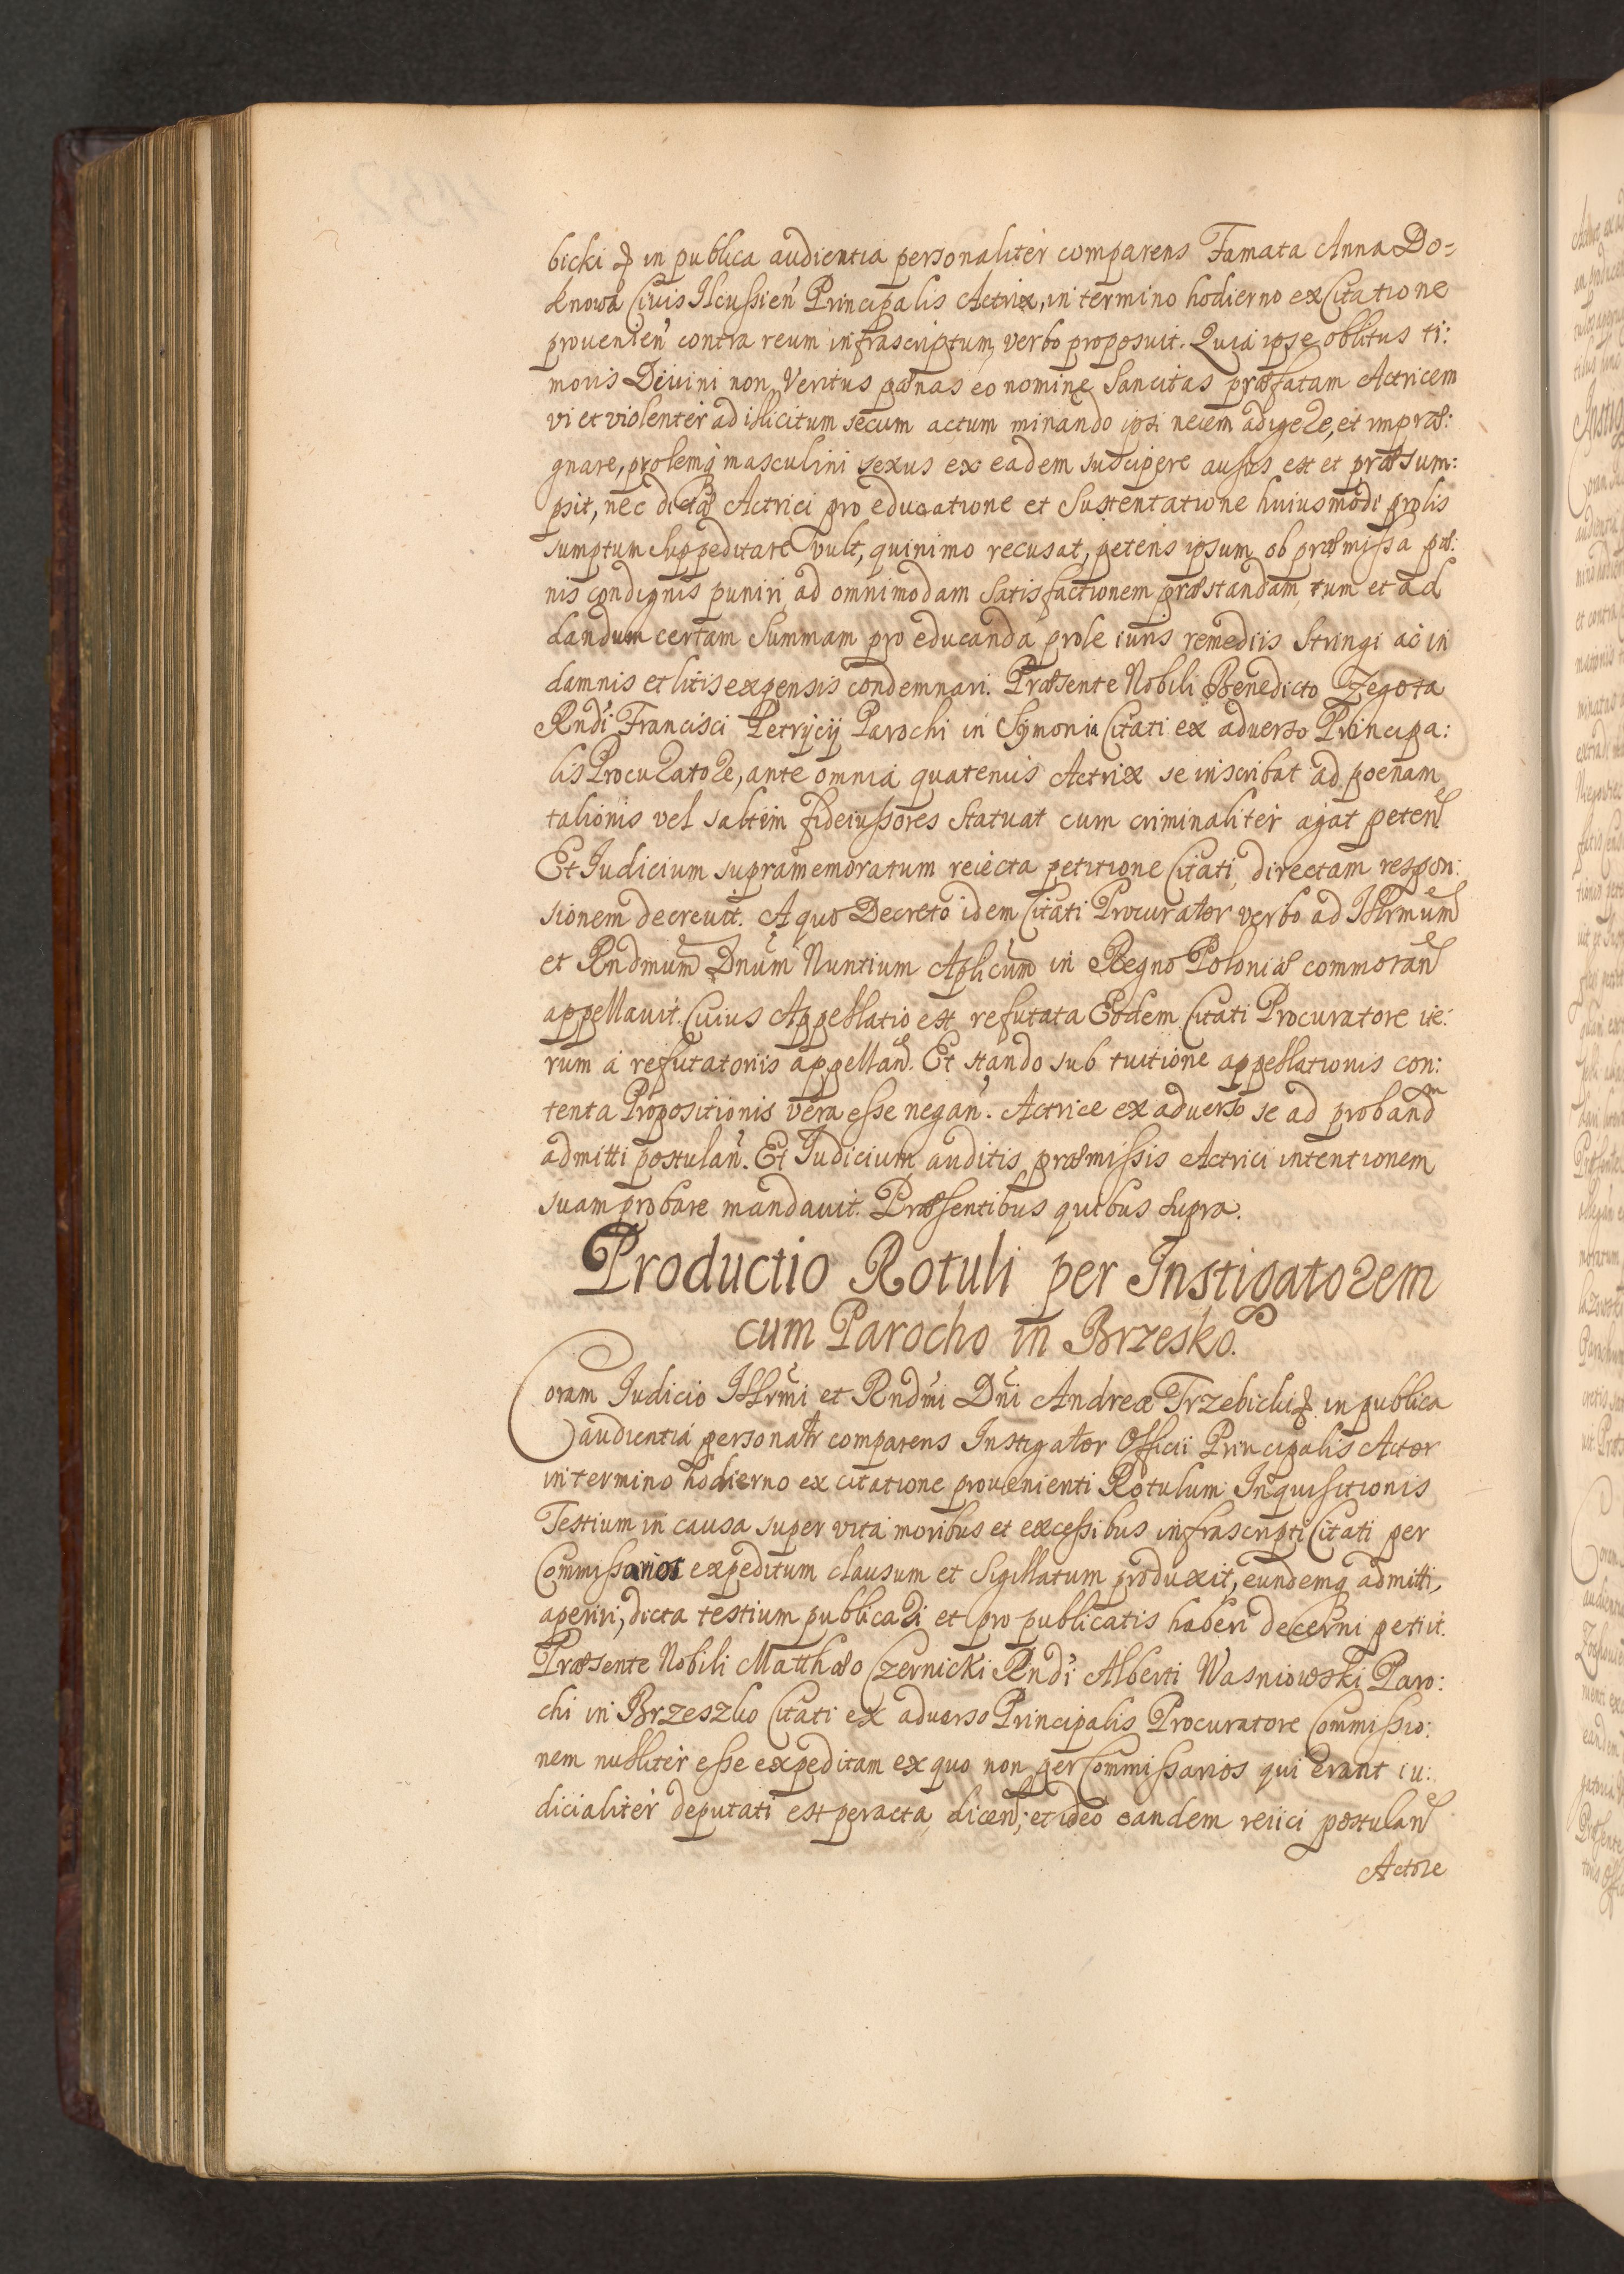 bicki & in publica audientia personaliter comparens Famata Anna Do=
knowa Civis Ilcussień Principalis Actrix, in termino hodierno ex Citatione
provenień contra reum infrascriptum, verbo proposuit. Quia ipse oblitus ti:
moris Divini non Veritus pœnas eo nomine Sancitas præfatam Actricem
vi et violenter ad illicitum secum actum minando ipsi necem adigere, et impræ:
gnare, prolemq masculini sexus ex eadem suscipere ausus est et præsum:
psit, nec dictæ Actrici pro educatione et Sustentatione huiusmodi prolis
sumptum Suppeditare vult, quinimo recusat, petens ipsum ob præmissa pœ:
nis condignis puniri, ad omnimodam Satisfactionem præstandam, tum et ad
dandum certam Summam pro educanda prole iuris remediis Stringi ac in
damnis et litis expensis condemnari. Præsente Nobili Benedicto Zegota
Rndi Francisci Petrycy Parochi in Symonia Citati ex adverso Principa:
lis Procuratore, ante omnia quatenus Actrix se inscribat ad poenam
talionis vel saltim fideiussores Statuat cum criminaliter agat peteñ
Et Iudicium supramemoratum reiecta petitione Citati, directam respon:
sionem decrevit. A quo Decreto idem Citati Procurator verbo ad Illrmum
et Rndmum Dnum Nuntium Aplicum in Regno Poloniæ commorañ
appellavit. Cuius Appellatio est refutata Eodem Citati Procuratore ite:
rum a refutatoriis appellañ. Et stando sub tuitione appellationis con:
tenta Propositionis vera esse negañ. Actrice ex adverso se ad proband
admitti postulañ. Et Iudicium auditis præmissis Actrici intentionem
suam probare mandavit. Præsentibus quibus Supra.
Productio Rotuli per Instigatorem
cum Parocho in Brzesko.
Coram Iudicio Illrmi et Rndmi Dni Andreæ Trzebicki & in publica
audientia personalr comparens Instigator Officii Principalis Actor
in termino hodierno ex citatione provenienti Rotulum Inquisitionis
Testium in causa super vita moribus et excessibus infrascripti Citati per
Commissarios expeditum clausum et Sigillatum produxit, eundemq admitti,
aperiri, dicta testium publicari et pro publicatis haberi decerni petiit.
Præsente Nobili Matthæo Czernicki Rndi Alberti Wasniowski Paro:
chi in Brzeszko Citati ex adverso Principalis Procuratore Commissio:
nem nulliter esse expeditam ex quo non per Commissarios qui erant iu:
dicialiter deputati est peracta diceñ, et ideo eandem reiici postulañ
Actore